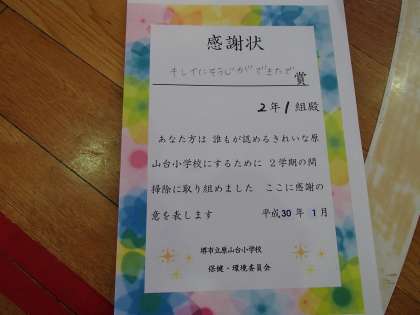 感謝状
キレイにそうじができたで賞
2年1組殿
あなた方は 誰もが認めるきれいな原
山台小学校にするために 2学期の間
掃除に取り組めました ここに感謝の
意を表します 平成30年 1月
堺市立原山台小学校
保健・環境委員会